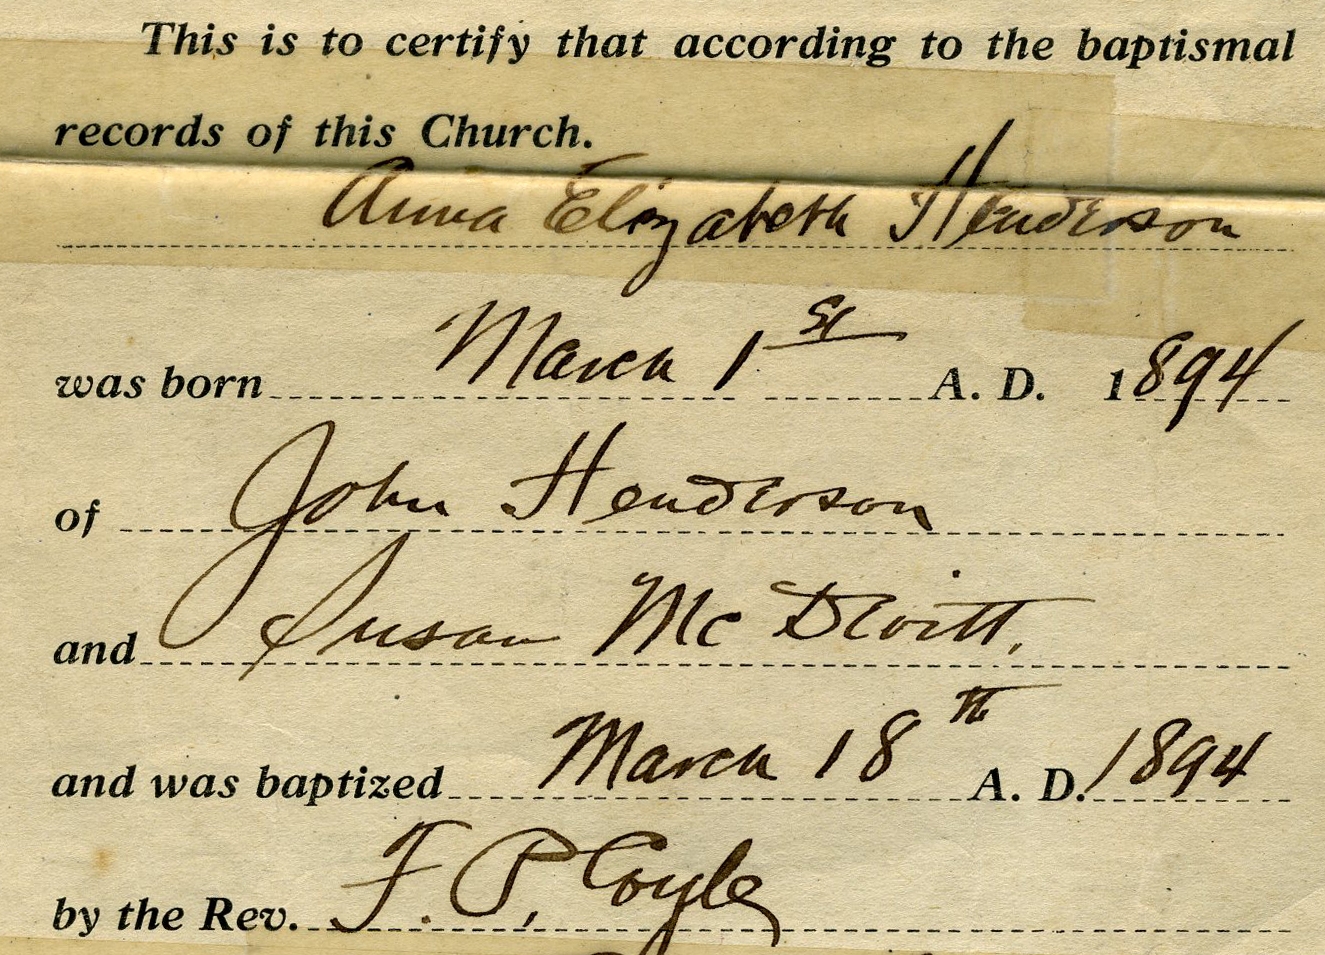 This is to certify that according to the baptismal
records of this Church.
Anna Elizabeth Henderson
was born March 1st A. D. 1894
of John Henderson
and Susan McDevitt.
and was baptized March 18th A. D. 1894
by the Rev. F. P. Coyle